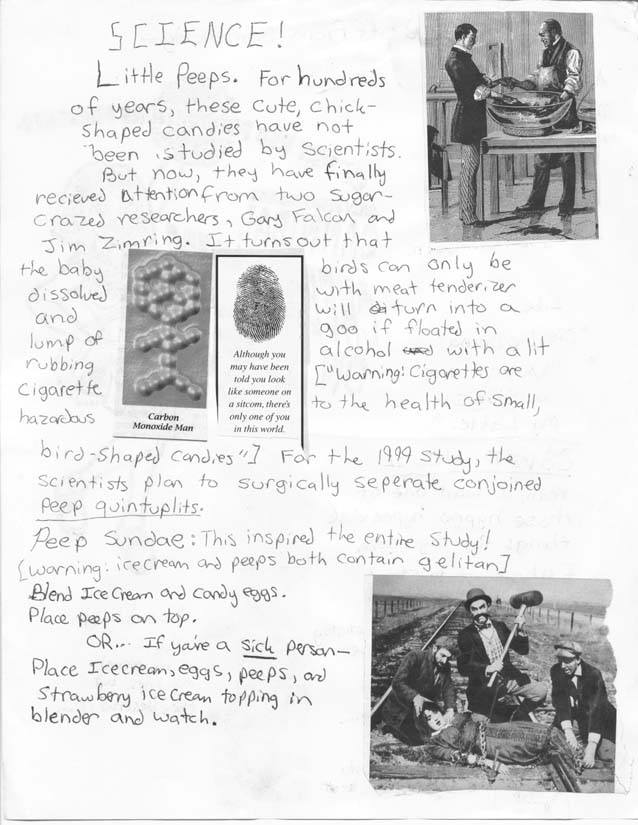 SCIENCE!
Little Peeps. For hundreds
of years, these cute, chick-
shaped candies have not
been studied by Scientists.
But now, they have finally
recieved Attention from two sugar-
crazed researchers, Gary Falcon and
Jim Zimring. It turns out that
the baby birds can only be
dissolved with meat tenderizer
and will turn into a
lump of goo if floated in
rubbing alcohol with a lit
cigarette ["Warning: Cigarettes are
hazardous to the health of small,
bird-shaped candies"] For the 1999 study, the
scientists plan to surgically seperate conjoined
Peep quintuplits.
Carbon
Monoxide Man
Although you
may have been
told you look
like someone on
a sitcom, there's
only one of you
in this world.
Peep Sundae: This inspired the entire study!
[Warning: ice cream and peeps both contain gelitan]
Blend Ice Cream and candy eggs.
Place peeps on top.
OR... If you're a sick person—
Place Icecream, eggs, peeps, and
Strawbery ice cream topping in
blender and watch.